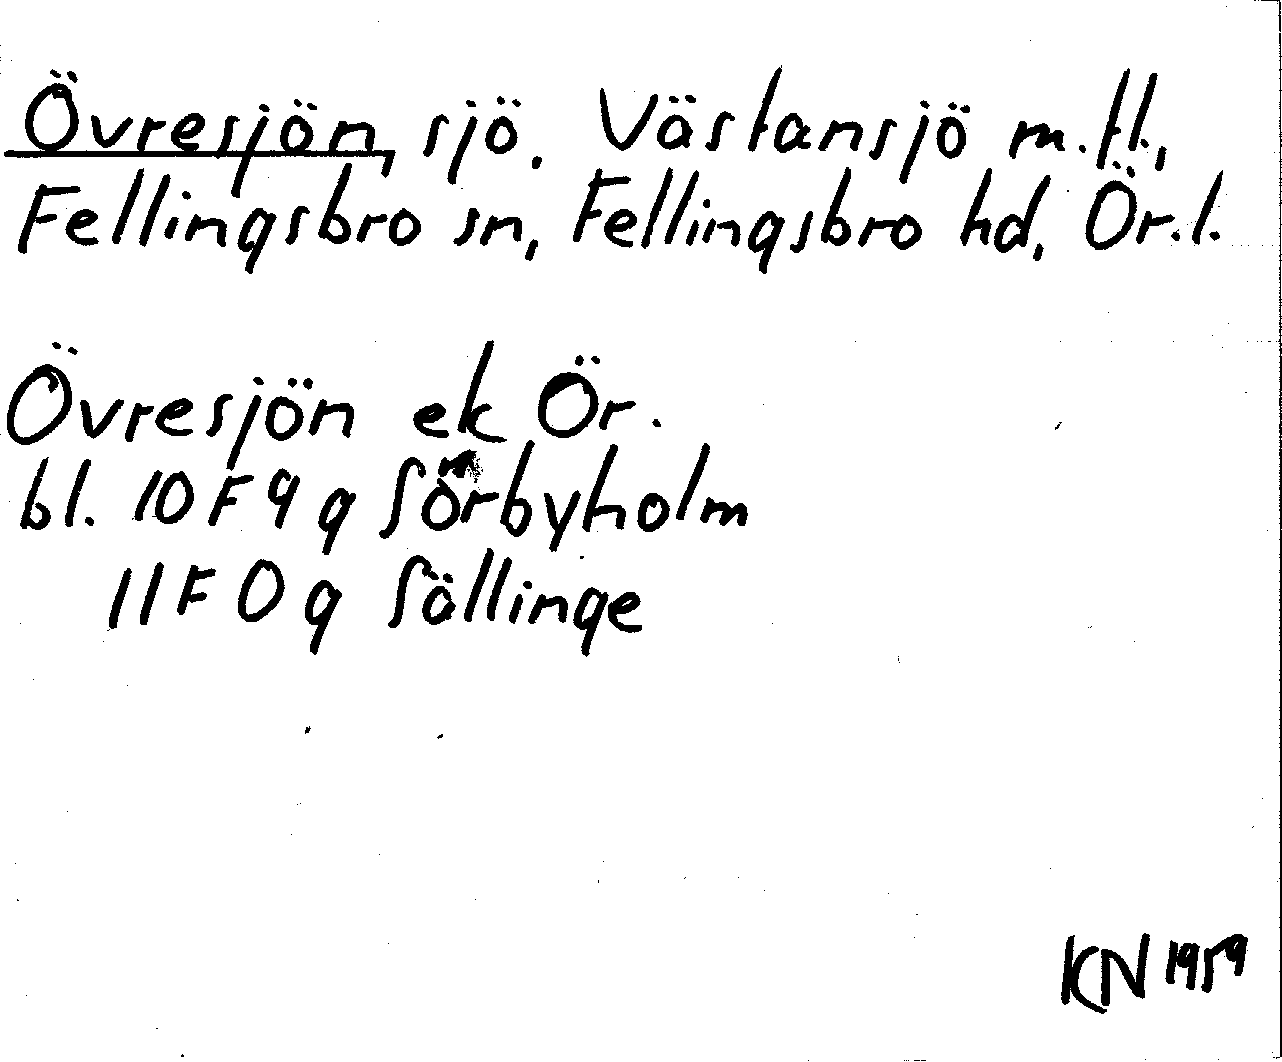 Övresjön, sjö. Västansjö m.fl.,
Fellingsbro sn, Fellingsbro hd, Ör.l.
Övresjön ek Ör.
bl. 10 F 9 g Sörbyholm
11 F 0 g Sällinge
KN 1959